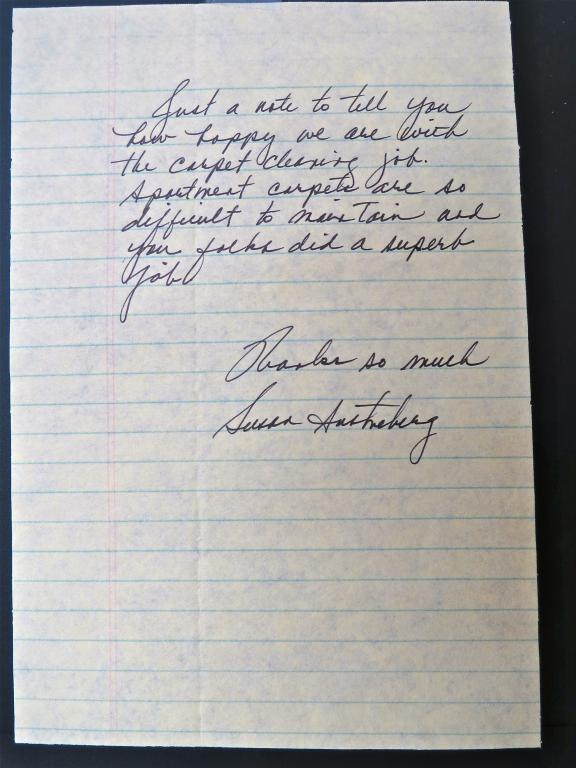 Just a note to tell you
how happy we are with
the carpet cleaning job.
Apartment carpets are so
difficult to maintain and
your folks did a superb
job
Thanks so much
Susan